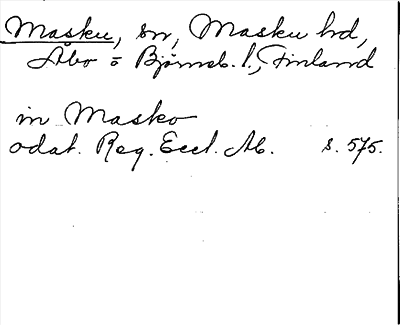 Masku, sn, Masku hd,
Åbo o Björneb. l., Finland
in Masko
odat. Reg. Eccl. Ab. s. 575.